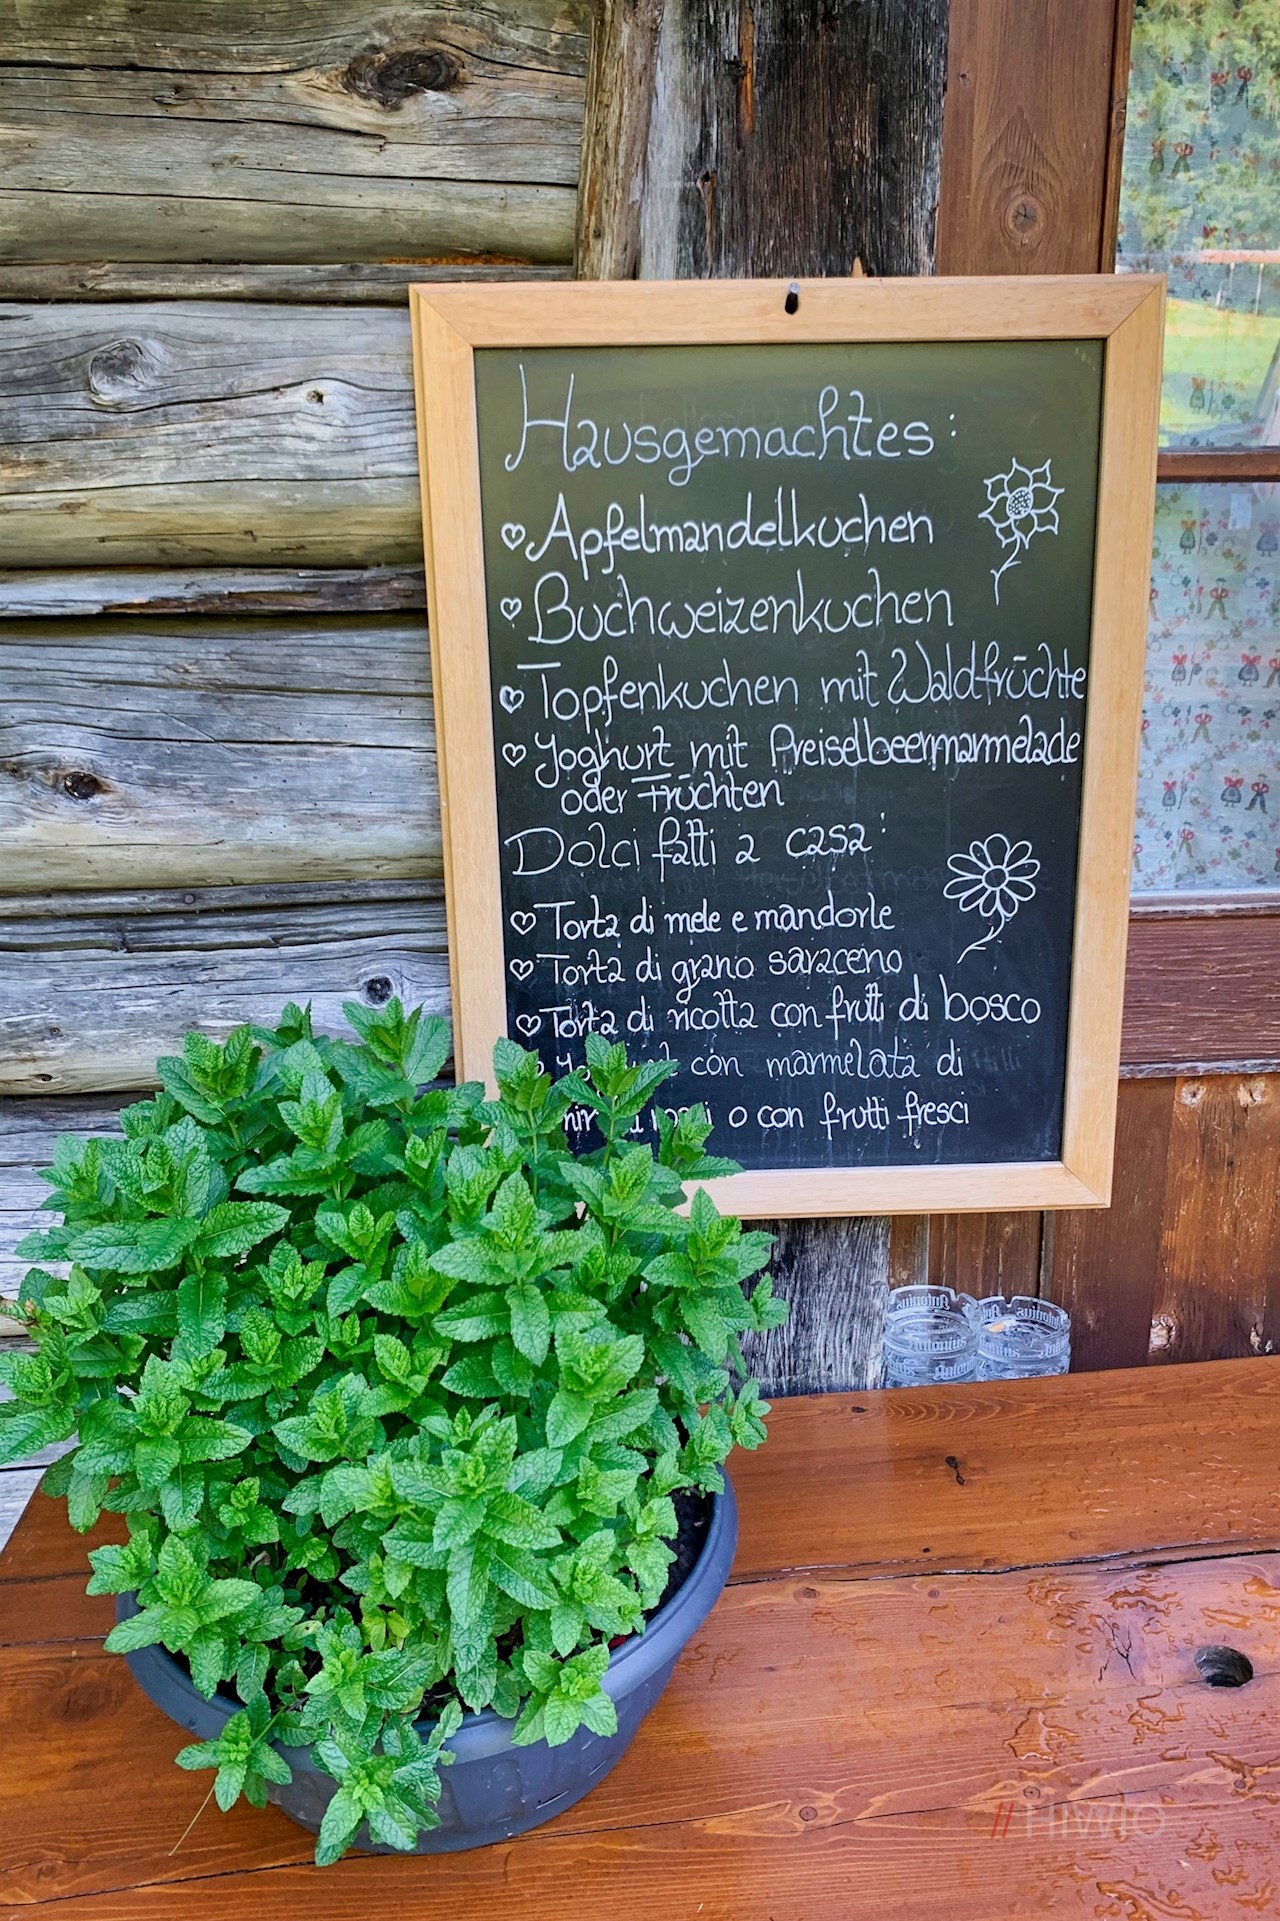 Hausgemachtes:
Apfelmandelkuchen
Buchweizenkuchen
Topfenkuchen mit Waldfrūchte
Joghurt mit Preiselbeermarmelade
oder Frūchten
Dolci fatti a casa:
Torta di mele e mandorle
Torta di grano saraceno
Torta di ricotta con frutti di bosco
con marmelata di
o con frutti fresci
Antonius
Antonius
//HIWIO